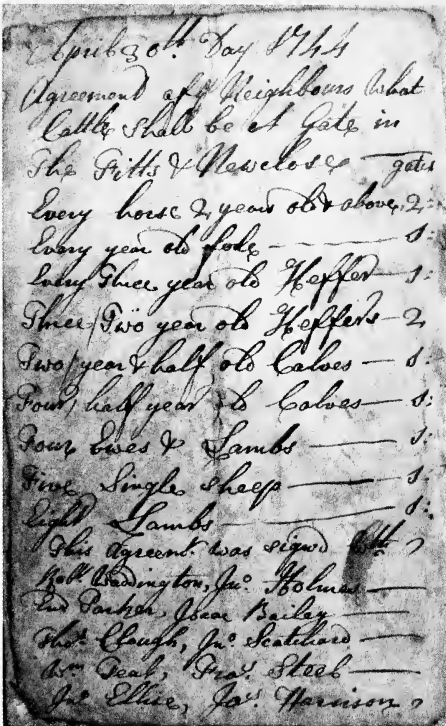 April 30th Day 1744
Agreement of ye Neighbours what
Cattle shall be A Gate in
The Fitts & Newclose — gates
Every horse 2 years old & above, 2:
Every year old fole — 1:
Every Three year old Heffer — 1:
Three Two year old Heffers — 2
Two year & half old Calves — 1:
Four half year old Calves — 1:
Four Ewes & Lambs — 1:
Five Single sheep — 1:
Eight Lambs — 1:
This Agreemt. was signd
Robt. Waddington, Jno. Holmes —
Parker, Isaac Bailey —
Thos. Clough, Jno. Scatchard —
Wm Teal, Fras. Steel —
Jno. Ellise, Jas. Harrison